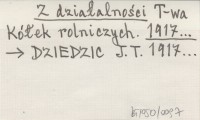 Z działalności T-wa
Kółek rolniczych. 1917...
→ DZIEDZIC J.T. 1917...